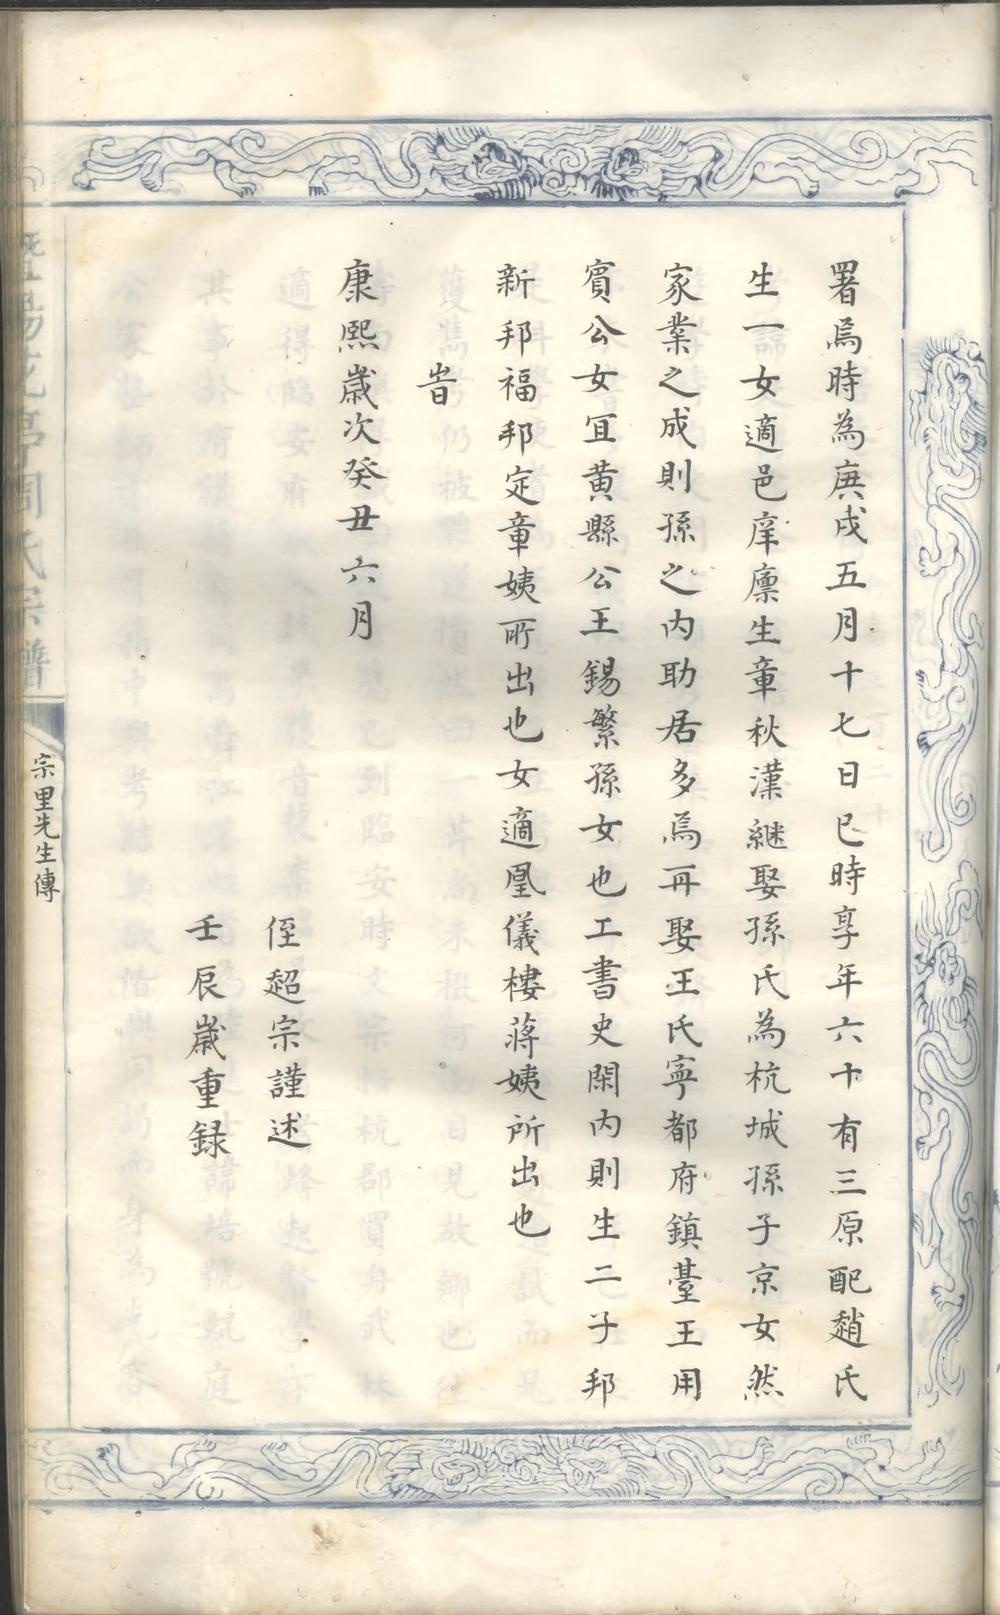 署焉時為庚戌五月十七日巳時享年六十有三原配趙氏
生一女適邑庠廩生章秋漢継娶孫氏為杭城孫子京女然
家業之成則孫之内助居多焉再娶王氏寧都府鎮臺王用
賔公女冝黄縣公王錫繁孫女也工書史閑内則生二子邦
新邦福邦定章姨所出也女適凰儀樓蔣姨所出也
旹
康熙歲次癸丑六月
侄超宗謹述
壬辰歲重録
暨陽花亭周氏宗譜
宗里先生傳